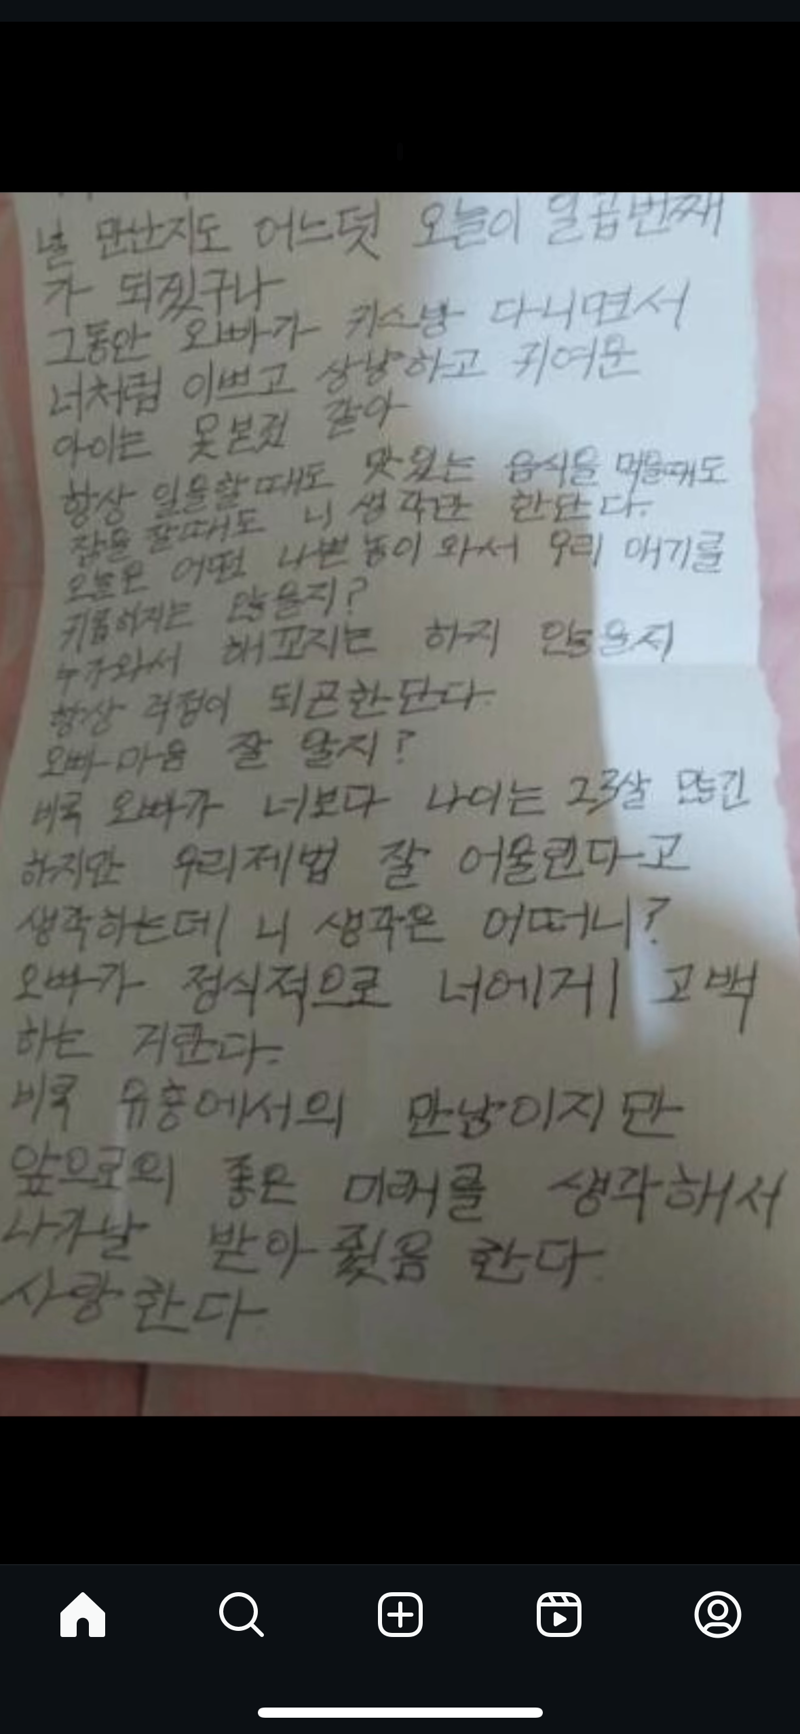 널 만난지도 어느덧 오늘이 일곱번째
가 되짔구나
그동안 오빠가 키스방 다니면서
너처럼 이쁘고 상냥하고 귀여운
아이는 못본것 같아
항상 일을할때도 맛있는 음식을 먹을때도
잠을 잘때도 니 생각만 한단다.
오늘은 어떤 나쁜놈이 와서 우리 애기를
괴롭히지는 않을지?
누구와서 해꼬지는 하지 안을지
항상 걱정이 되곤한단다.
오빠마음 잘 알지?
비록 오빠가 너보다 나이는 23살 많긴
하지만 우리제법 잘 어울린다고
생각하는데 니 생각은 어떠니?
오빠가 정식적으로 너에게 고백
하는 거란다.
비록 유흥에서의 만남이지만
앞으로의 좋은 미래를 생각해서
나가날 받아 줬음 한다.
사랑한다.